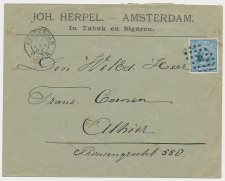 JOH. HERPEL — AMSTERDAM.
In Tabak en Sigaren.
Den WelEd Heer
Frans Coenen
Alhier
Prinsengracht 558